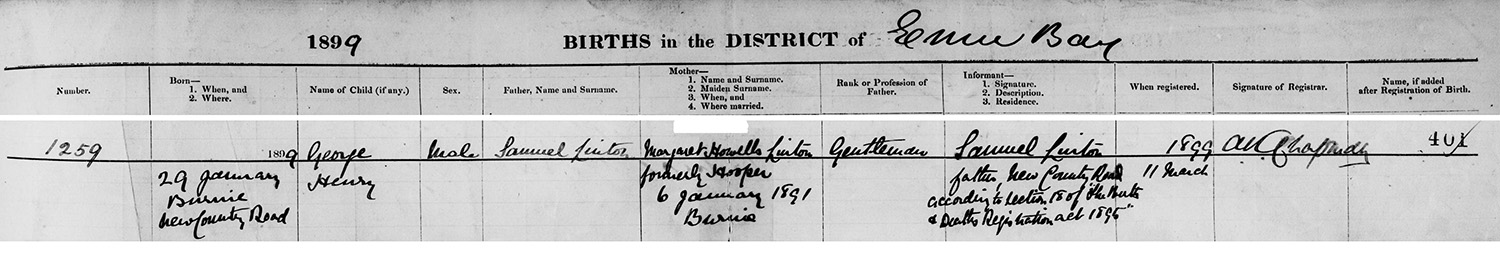 1899 BIRTHS in the DISTRICT of Emu Bay
Number.
Born—
1. When, and
2. Where.
Name of Child (if any).
Sex.
Father, Name and Surname.
Mother—
1. Name and Surname.
2. Maiden Surname.
3. When, and
4. Where married.
Rank or Profession of
Father.
Informant—
1. Signature.
2. Description.
3. Residence.
When registered.
Signature of Registrar.
Name, if added
after Registration of Birth.
1259
1899
29 January
Burnie
New Country Road
George
Henry
Male
Samuel Linton
Margaret Howells Linton
formerly Hooper
6 January 1891
Burnie
Gentleman
Samuel Linton
father, New Country Road
according to section 18 of "the Births
& Deaths Registration act 1895"
1899
11 March
Chapman
401